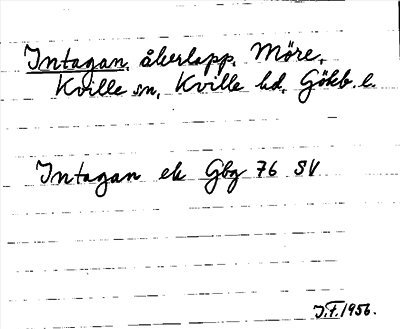 Intagan, åkerlapp. Möre,
Kville sn, Kville hd, Göteb. l.
Intagan ek Gbg 76 SV
J.F. 1956.